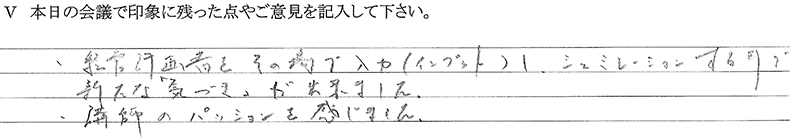 V 本日の会議で印象に残った点やご意見を記入して下さい。
・経営計画書をその場で入力(インプット)し、シュミレーションする事で
新たな「気づき」が出来ました。
・講師のパッションを感じました。